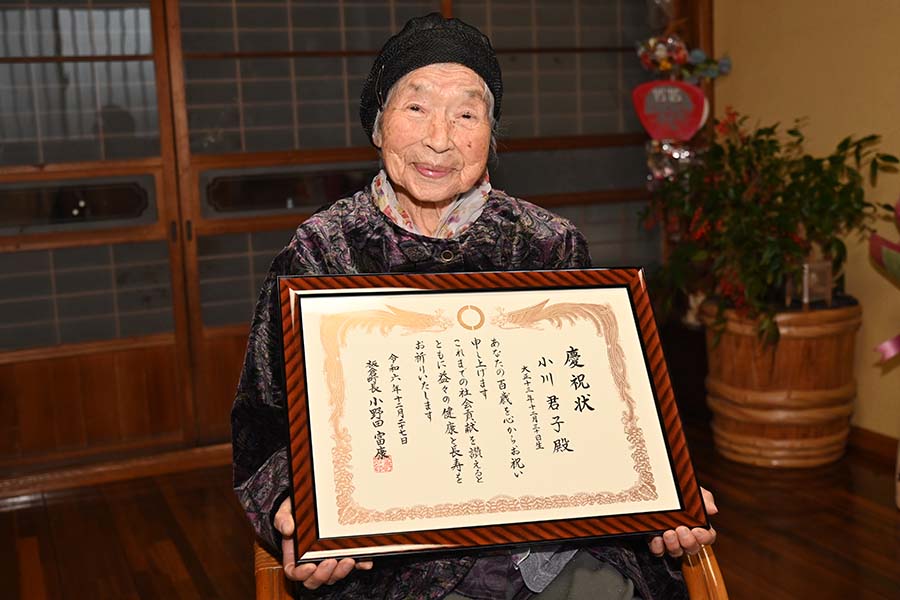 慶祝状
小川君子殿
大正十三年十二月二十日生
あなたの百歳を心からお祝い
申し上げます
これまでの社会貢献を讃えると
ともに益々の健康と長寿を
お祈りいたします
令和六年十二月二十七日
板倉町長 小野田富康